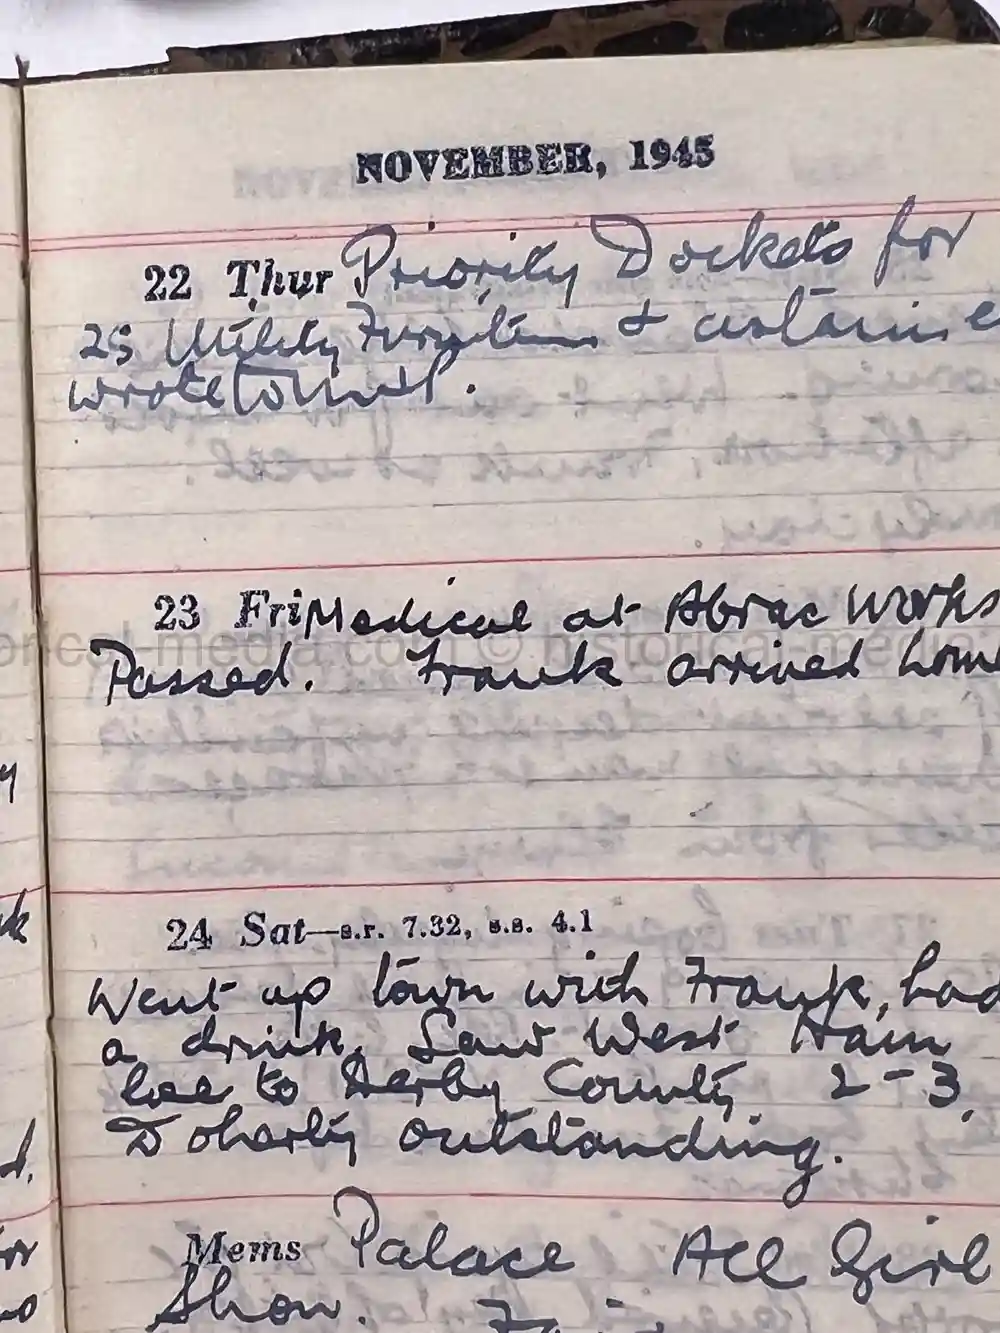 NOVEMBER, 1945
22 Thur Priority Dockets for
25 Utility Furniture & curtains
wrote to
23 Fri Medical at Abrac Works
Passed. Frank arrived hom
historical-media.com © historical-media
24 Sat—s.r. 7.32, s.s. 4.1
Went up town with Frank, had
a drink. Saw West Ham
lose to Derby County 2-3.
Doherty outstanding.
Mems Palace All Girl
Show.